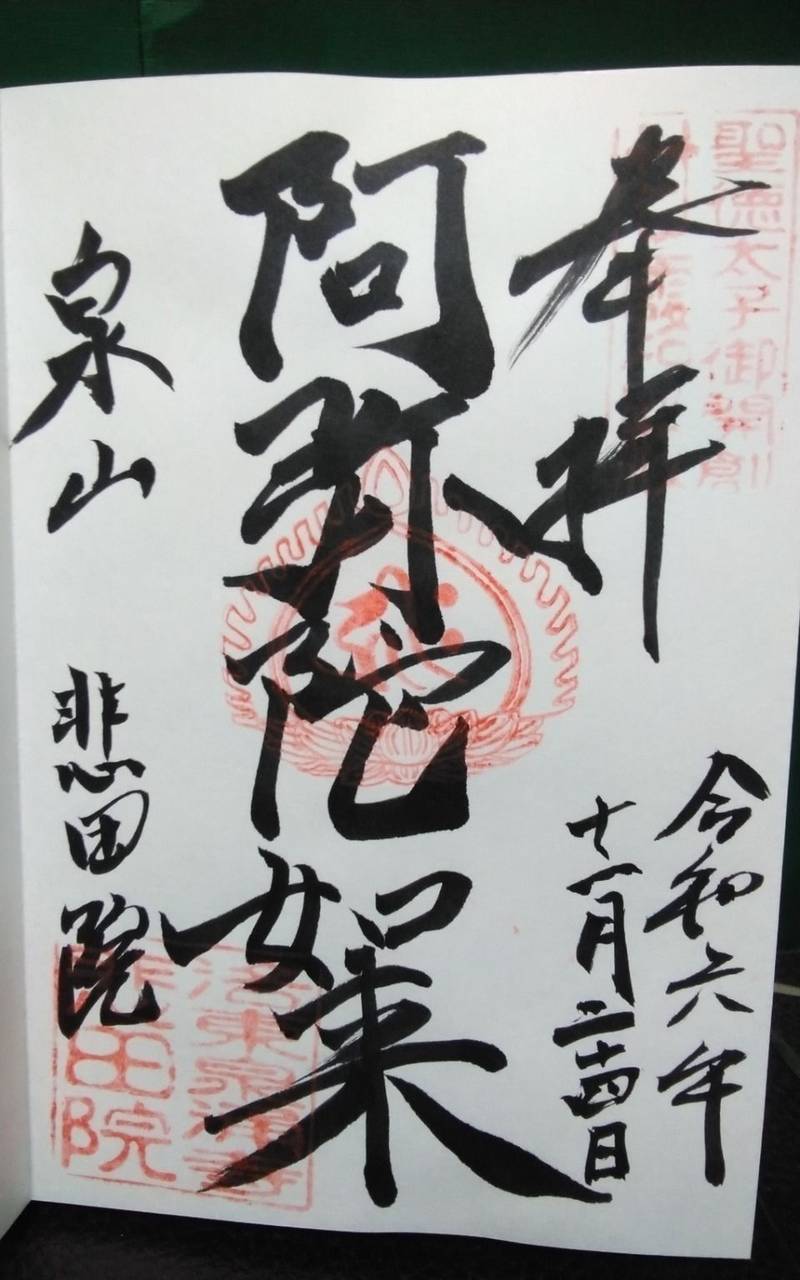 聖徳太子御開創
奉拝
令和六年
十一月二十四日
阿弥陀如来
泉山
悲田院
洛東泉涌寺
悲田院